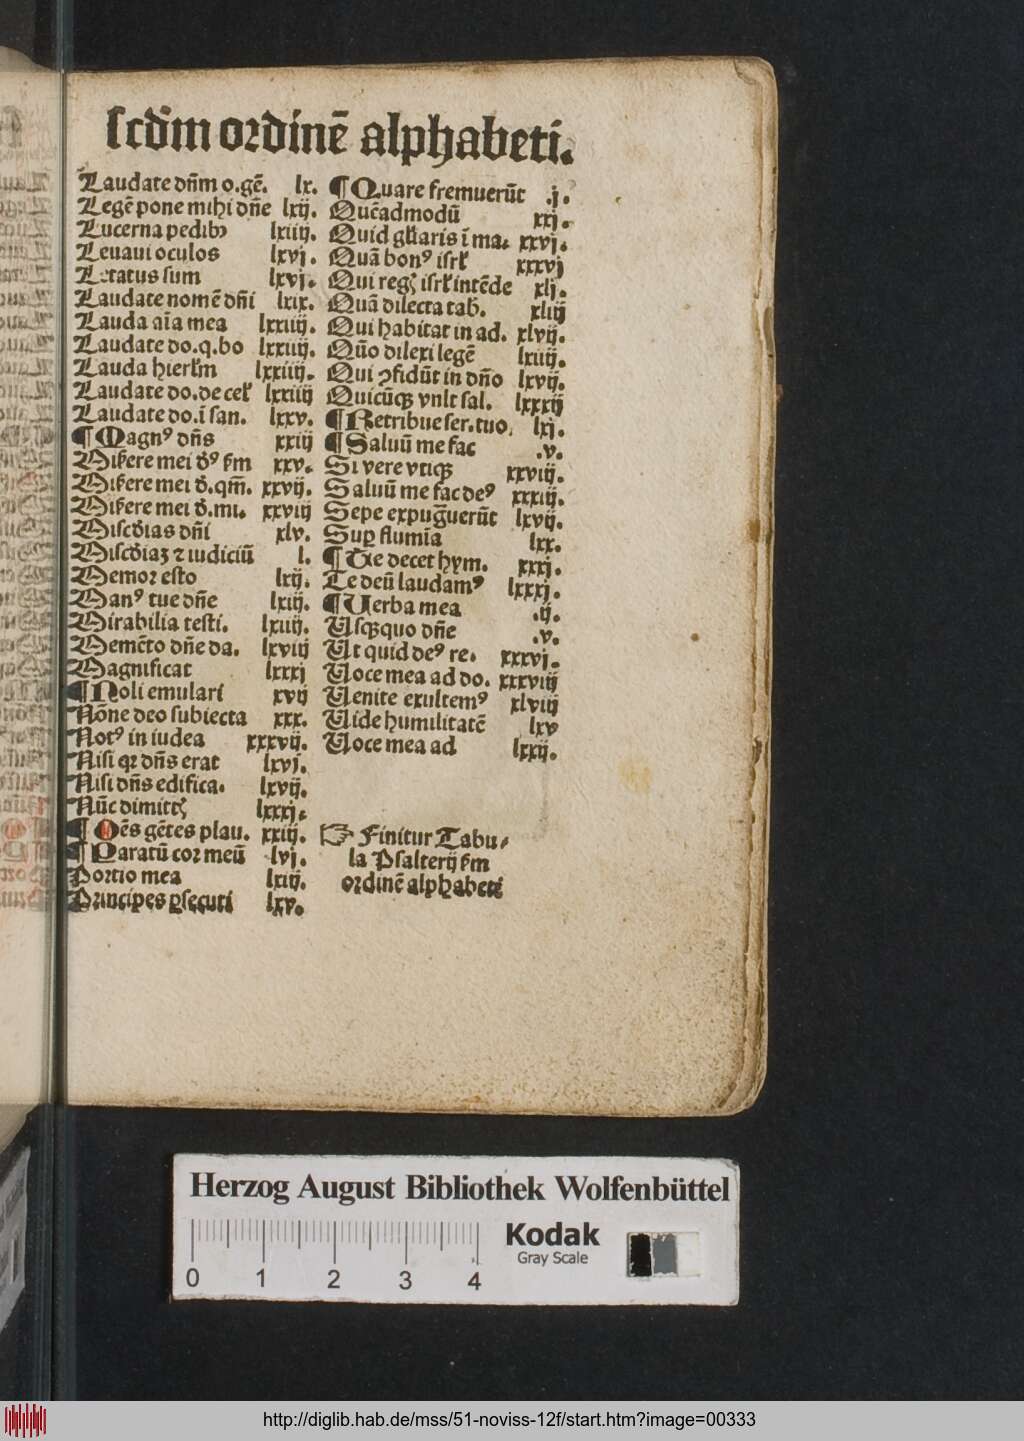 scd̄m ordinē alphabeti.
Laudate dn̄m o.gē. lx.
Legē pone mihi dn̄e lxij.
Lucerna pedibꝰ lxiiij.
Leuaui oculos lxvj.
Letatus sum lxvj.
Laudate nomē dn̄i lxix.
Lauda aīa mea lxxiiij.
Laudate do.q.bo lxxiiij.
Lauda hierłm lxxiiij.
Laudate do.de cel' lxxiiij
Laudate do.ī san. lxxv.
¶ Magnꝰ dn̄s xxiij
xxv.
xxvij.
xxviij
dn̄i xlv.
⁊ iudiciū l.
Memor esto lxij.
Manꝰ tue dn̄e lxiij.
Mirabilia testi. lxiiij.
Memēto dn̄e da. lxviij
Magnificat lxxxj
¶ Noli emulari xvij
Nōne deo subiecta xxx.
Notꝰ in iudea xxxvij.
Nisi qꝛ dn̄s erat lxvj.
Nisi dn̄s edifica. lxvij.
Nūc dimittꝭ lxxxj.
¶ Oēs gētes plau. xxiij.
¶ Paratū cor meū lvj.
Portio mea lxiij.
Principes ꝑsecuti lxv.
¶ Quare fremuerūt .j.
Quēadmodū xxj.
Quid gl'iaris ī ma. xxvj.
Quā bonꝰ isrl' xxxvj
Qui regꝭ isrl' intēde xlj.
Quā dilecta tab. xliij
Qui habitat in ad. xlvij.
Quō dilexi legē lxiiij.
Qui ꝯfidūt in dn̄o lxvij.
Quicūqꝫ vult sal. lxxxij
¶ Retribue ser.tuo. lxj.
¶ Saluū me fac .v.
Si vere vtiqꝫ xxviij.
Saluū me fac deꝰ xxxiij.
Sepe expug̅uerūt lxvij.
Suꝑ flumīa lxx.
¶ Te decet hym. xxxj.
Te deū laudamꝰ lxxxj.
¶ Uerba mea .ij.
Usqꝫquo dn̄e .v.
Ut quid deꝰ re. xxxvj.
Uoce mea ad do. xxxviij
Uenite exultemꝰ xlviij
Uide humilitatē lxv
Uoce mea ad lxxij.
☞ Finitur Tabu⸗
la Psalterij
ordinē alphabeti
Herzog August Bibliothek Wolfenbüttel
Kodak
Gray Scale
0 1 2 3 4
http://diglib.hab.de/mss/51-noviss-12f/start.htm?image=00333